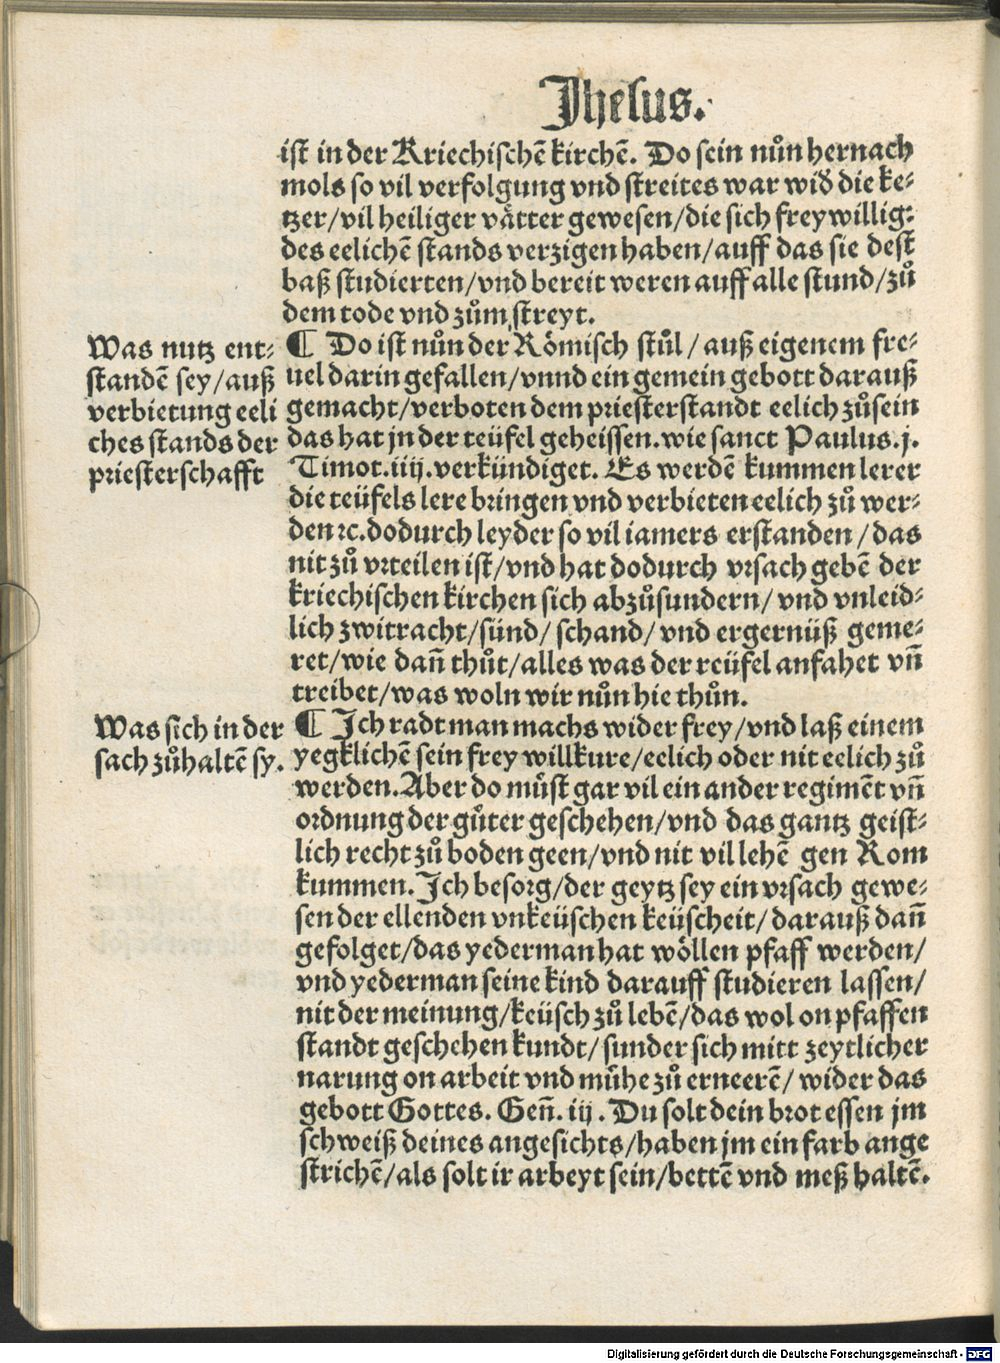 Jhesus.
ist in der Kriechischē kirchē. Do sein nůn hernach
mols so vil verfolgung vnd streites war wid̕ die ke⸗
tzer/vil heiliger vätter gewesen/die sich freywillig⸗
des eelichē stands verzigen haben/auff das sie dest
baß studierten/vnd bereit weren auff alle stund/zů
dem tode vnd zům streyt.
Was nutz ent⸗
standē sey/auß
verbietung eeli
ches stands der
priesterschafft
¶ Do ist nůn der Römisch stůl/ auß eigenem fre⸗
uel darin gefallen/vnnd ein gemein gebott darauß
gemacht/verboten dem priesterstandt eelich zůsein
das hat jn der teüfel geheissen.wie sanct Paulus.j.
Timot.iiij.verkündiget. Es werdē kummen lerer
die teüfels lere bringen vnd verbieten eelich zů wer⸗
den ⁊c.dodurch leyder so vil iamers erstanden/das
nit zů vrteilen ist/vnd hat dodurch vrsach gebē der
kriechischen kirchen sich abzůsundern/ vnd vnleid⸗
lich zwitracht/sünd/ schand/ vnd ergernüß geme⸗
ret/wie dañ thůt/alles was der teüfel anfahet vñ
treibet/was woln wir nůn hie thůn.
Was sich in der
sach zůhaltē sy.
¶ Ich radt man machs wider frey/vnd laß einem
yegklichē sein frey willkure/eelich oder nit eelich zů
werden.Aber do můst gar vil ein ander regimēt vñ
ordnung der gůter geschehen/vnd das gantz geist⸗
lich recht zů boden geen/vnd nit vil lehē gen Rom
kummen. Ich besorg/der geytz sey ein vrsach gewe⸗
sen der ellenden vnkeüschen keüscheit/darauß dañ
gefolget/das yederman hat wöllen pfaff werden/
vnd yederman seine kind darauff studieren lassen/
nit der meinung/keüsch zů lebē/das wol on pfaffen
standt geschehen kundt/ sunder sich mitt zeytlicher
narung on arbeit vnd můhe zů erneerē/ wider das
gebott Gottes. Geñ. iij. Du solt dein brot essen jm
schweiß deines angesichts/haben jm ein farb ange
strichē/als solt ir arbeyt sein/bettē vnd meß haltē.
Digitalisierung gefördert durch die Deutsche Forschungsgemeinschaft - DFG